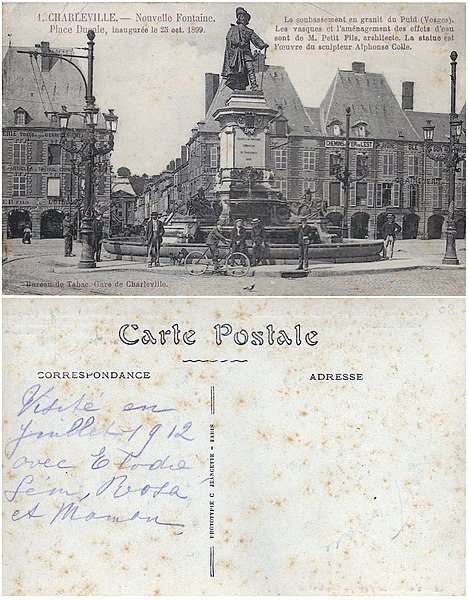 1. CHARLEVILLE. — Nouvelle Fontaine.
Place Ducale, inaugurée le 25 oct. 1899.
Le soubassement en granit du Puid (Vosges).
Les vasques et l'aménagement des effets d'eau
sont de M. Petit Fils, architecte. La statue est
l'œuvre du sculpteur Alphonse Colle.
CHEMINS FER DE L'EST
Bureau de Tabac, Gare de Charleville.
Carte Postale
CORRESPONDANCE
ADRESSE
Visité en
Juillet 1912
avec Elodie
Rosa
et Maman
PHOTOTYPIE C. JEANGETTE - PARIS